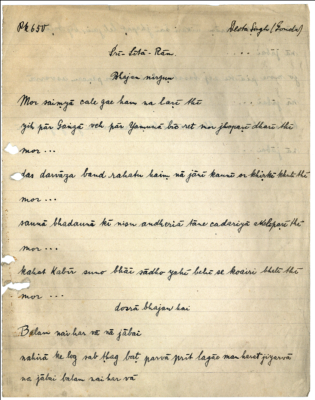 Pk 650 Deota Singh (Gonda)
Srī-Sītā-Rām
Bhajan nirgun
Mor saimyā cale gae ham na lare thī
yih pār Gangā voh pār Yamunā bīc ret mor jhoparī dharī thī
mor ...
das darvāza band rahatu haim nā jānī kaunī or khirkī khulī thī
mor ...
saunā bhadaunā kī nisu andheriā tāne cadariyā akelī parī thī
mor ...
kahat Kabīr suno bhāī sādho yahī behī se koairi bhelī thī
mor ...
dosrā bhajan hai
Balam naihar vā nā jābai
nahirā ke log sab thag bat parvā prīt lagāe man harat jiyarvā
na jābai balam naihar vā